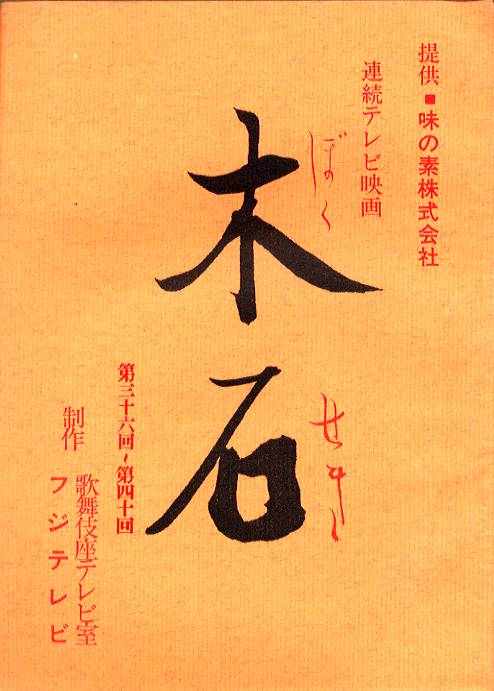 提供■味の素株式会社
連続テレビ映画
木石
ぼくせき
第三十六回〜第四十回
制作
歌舞伎座テレビ室
フジテレビ